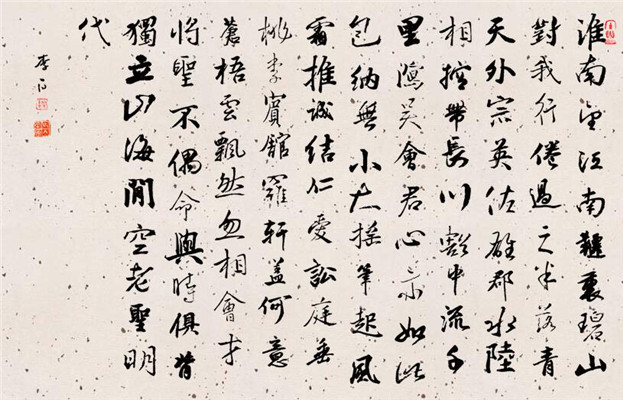 淮南望江南韆裏碧山
對我行倦過之半落青
天外宗英佐雄郡水陸
相控帶長川豁中流千
里瀉吳會君心亦如此
包納無小大摇筆起風
霜推誠結仁愛訟庭垂
桃李賓館羅軒蓋何意
蒼梧雲飄然忽相會才
将聖不偶命與時俱背
獨立山海間空老聖明
代
李